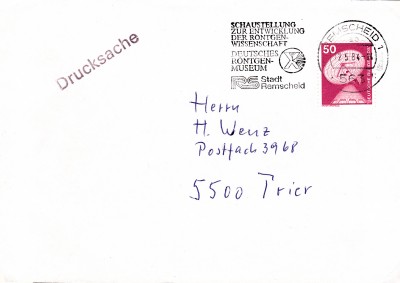 Drucksache
SCHAUSTELLUNG
ZUR ENTWICKLUNG
DER RÖNTGEN-
WISSENSCHAFT
DEUTSCHES
RÖNTGEN-
MUSEUM
RS Stadt
Remscheid
REMSCHEID 1
5.84
50
Herrn
H. Wenz
Postfach 3968
5500 Trier